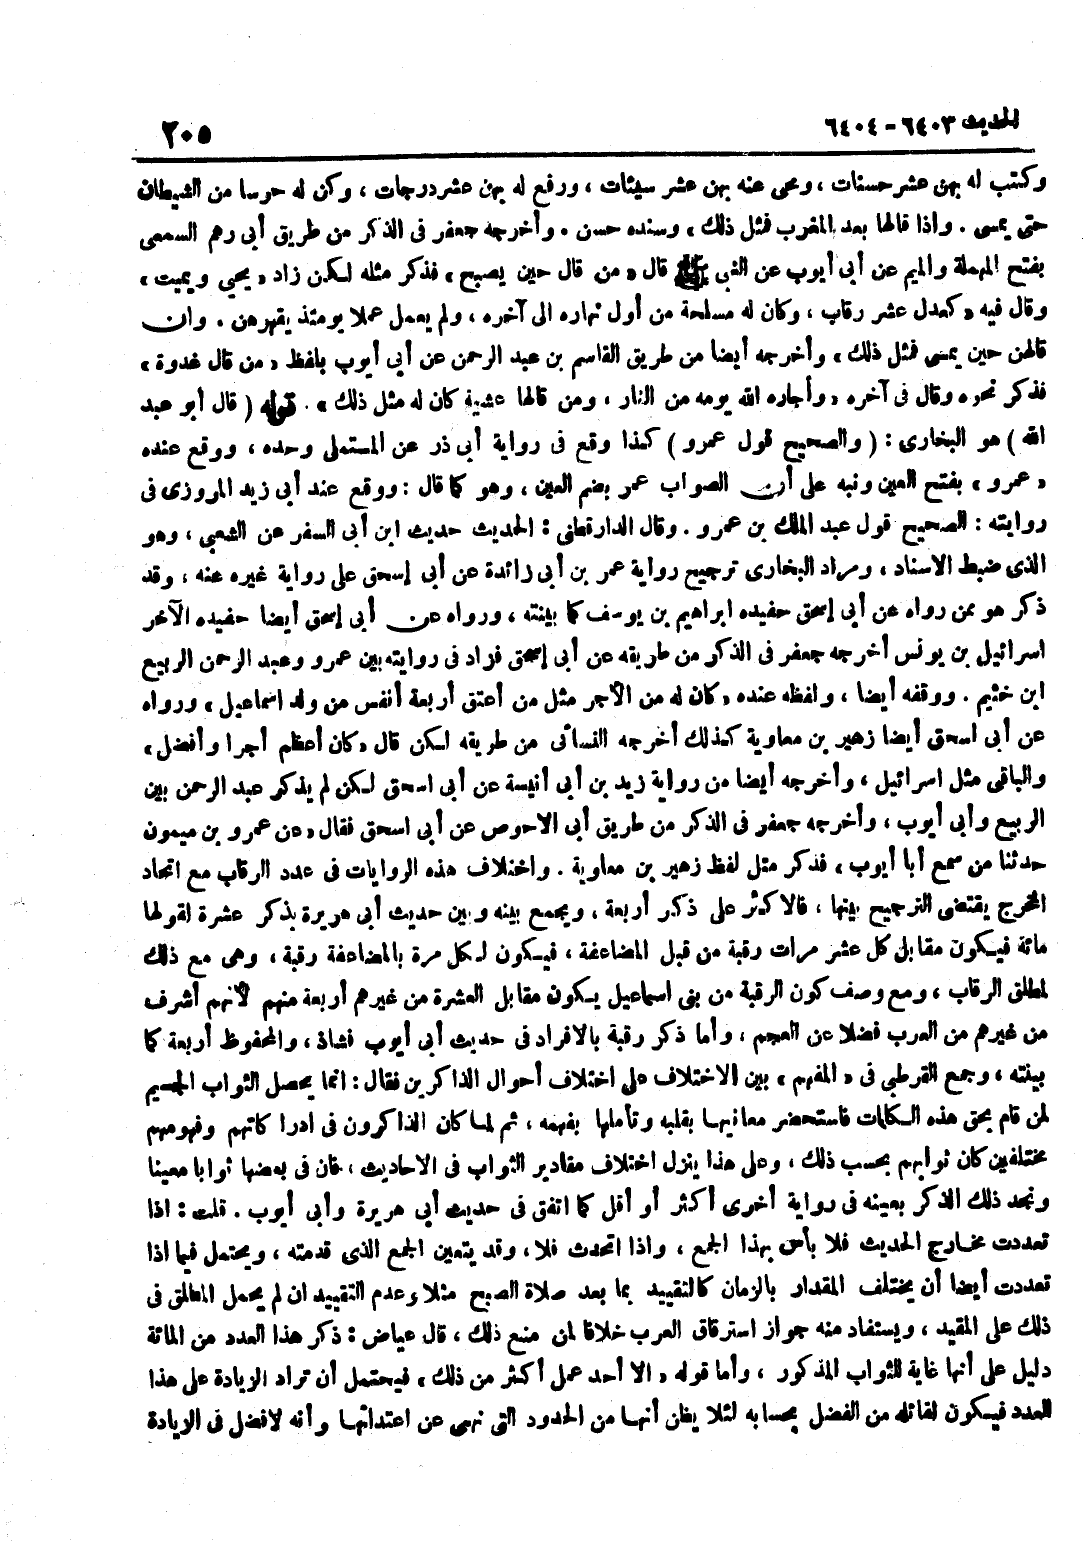 الحديث ٦٤٠٣ - ٦٤٠٤
٢٠٥
وكتب له بهن عشر حسنات ، ومحى عنه بهن عشر سيئات ، ورفع له بهن عشر درجات ، وكن له حرسا من الشيطان
حتى يمسى . واذا قالها بعد المغرب فمثل ذلك » وسنده حسن . وأخرجه جعفر فى الذكر من طريق أبى رهم السمعى
بفتح المهملة والميم عن أبى أيوب عن النبى ﷺ قال « من قال حين يصبح » فذكر مثله لكن زاد « يحيي ويميت »
وقال فيه « كعدل عشر رقاب ، وكان له مسلحة من أول نهاره الى آخره ، ولم يعمل عملا يومئذ يقهرهن . وان
قالهن حين يمسى فمثل ذلك » وأخرجه أيضا من طريق القاسم بن عبد الرحمن عن أبى أيوب بلفظ « من قال غدوة »
فذكر نحوه وقال فى آخره « وأجاره الله يومه من النار ، ومن قالها عشية كان له مثل ذلك » . قوله ( قال أبو عبد
الله ) هو البخارى : ( والصحيح قول عمرو ) كذا وقع فى رواية أبى ذر عن المستملى وحده ، ووقع عنده
« عمرو » بفتح العين ونبه على أن الصواب عمر بضم العين ، وهو كما قال : ووقع عند أبى زيد المروزى فى
روايته : الصحيح قول عبد الملك بن عمرو . وقال الدارقطنى : الحديث حديث ابن أبى السفر عن الشعبى ، وهو
الذى ضبط الاسناد ، ومراد البخارى ترجيح رواية عمر بن أبى زائدة عن أبى إسحق على رواية غيره عنه ، وقد
ذكر هو ممن رواه عن أبى إسحق حفيده ابراهيم بن يوسف كما بينته ، ورواه عن أبى إسحق أيضا حفيده الآخر
اسرائيل بن يونس أخرجه جعفر فى الذكر من طريقه عن أبى إسحق فزاد فى روايته بين عمرو وعبد الرحمن الربيع
ابن خثيم . ووقفه أيضا ، ولفظه عنده « كان له من الأجر مثل من أعتق أربعة أنفس من ولد اسماعيل » ورواه
عن أبى اسحق أيضا زهير بن معاوية كذلك أخرجه النسائى من طريقه لكن قال « كان أعظم أجرا وأفضل »
والباقى مثل اسرائيل ، وأخرجه أيضا من رواية زيد بن أبى أنيسة عن أبى اسحق لكن لم يذكر عبد الرحمن بين
الربيع وأبى أيوب ، وأخرجه جعفر فى الذكر من طريق أبى الاحوص عن أبى اسحق فقال « عن عمرو بن ميمون
حدثنا من سمع أبا أيوب ، فذكر مثل لفظ زهير بن معاوية . واختلاف هذه الروايات فى عدد الرقاب مع اتحاد
المخرج يقتضى الترجيح بينها ، فالاكثر على ذكر أربعة ، ويجمع بينه وبين حديث أبى هريرة بذكر عشرة لقولها
مائة فيكون مقابل كل عشر مرات رقبة من قبل المضاعفة ، فيكون لكل مرة بالمضاعفة رقبة ، وهى مع ذلك
لمطلق الرقاب ، ومع وصف كون الرقبة من بنى اسماعيل يكون مقابل العشرة من غيرهم أربعة منهم لأنهم أشرف
من غيرهم من العرب فضلا عن العجم ، وأما ذكر رقبة بالافراد فى حديث أبى أيوب فشاذ ، والمحفوظ أربعة كما
بينته ، وجمع القرطبى فى « المفهم » بين الاختلاف على اختلاف أحوال الذاكرين فقال : انما يحصل الثواب الجسيم
لمن قام بحق هذه الكلمات فاستحضر معانيها بقلبه وتأملها بفهمه ، ثم لما كان الذاكرون فى ادراكاتهم وفهومهم
مختلفين كان ثوابهم بحسب ذلك ، وعلى هذا ينزل اختلاف مقادير الثواب فى الاحاديث ، فان فى بعضها ثوابا معينا
ونجد ذلك الذكر بعينه فى رواية أخرى أكثر أو أقل كما اتفق فى حديث أبى هريرة وأبى أيوب . قلت : اذا
تعددت مخارج الحديث فلا بأس بهذا الجمع ، واذا اتحدت فلا ، وقد يتعين الجمع الذى قدمته ، ويحتمل فيما اذا
تعددت أيضا أن يختلف المقدار بالزمان كالتقييد بما بعد صلاة الصبح مثلا وعدم التقييد ان لم يحمل المطلق فى
ذلك على المقيد ، ويستفاد منه جواز استرقاق العرب خلافا لمن منع ذلك ، قال عياض : ذكر هذا العدد من المائة
دليل على أنها غاية للثواب المذكور ، وأما قوله « الا أحد عمل أكثر من ذلك » فيحتمل أن تراد الزيادة على هذا
العدد فيكون لقائله من الفضل بحسابه لئلا يظن أنها من الحدود التى نهى عن اعتدائها وأنه لافضل فى الزيادة